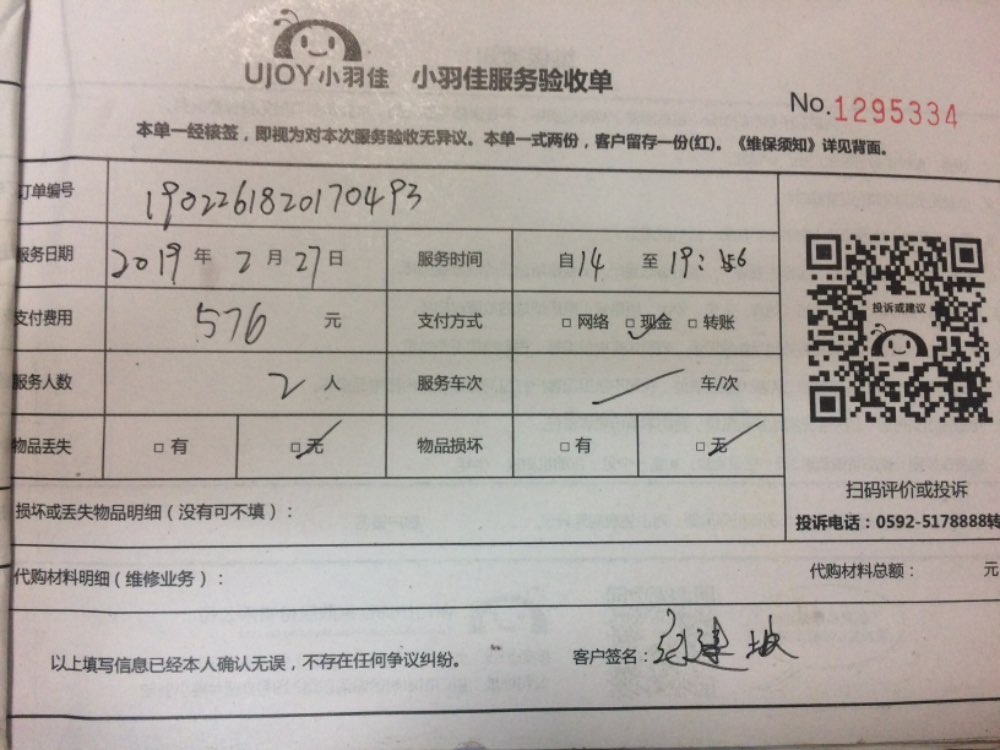 UJOY小羽佳 小羽佳服务验收单
No.1295334
本单一经核签，即视为对本次服务验收无异议。本单一式两份，客户留存一份(红)。《维保须知》详见背面。
订单编号 1902261820170493
服务日期 2019 年 2 月 27 日 服务时间 自14 至 19:56
支付费用 576 元 支付方式 □ 网络 □ 现金 □ 转账
服务人数 2 人 服务车次 车/次
物品丢失 □ 有 □ 无 物品损坏 □ 有 □ 无
投诉或建议
扫码评价或投诉
投诉电话：0592-5178888转
损坏或丢失物品明细（没有可不填）：
代购材料明细（维修业务）： 代购材料总额： 元
以上填写信息已经本人确认无误，不存在任何争议纠纷。 客户签名：